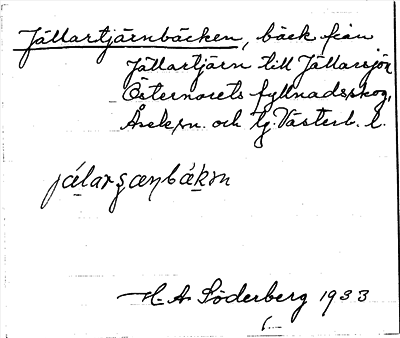 Jällartjärnbäcken, bäck från
Jällartjärn till Jällarsjön
Östernorets fyllnadsskog,
Åsele sn. och tg. Västerb. l.
H. A. Söderberg 1933